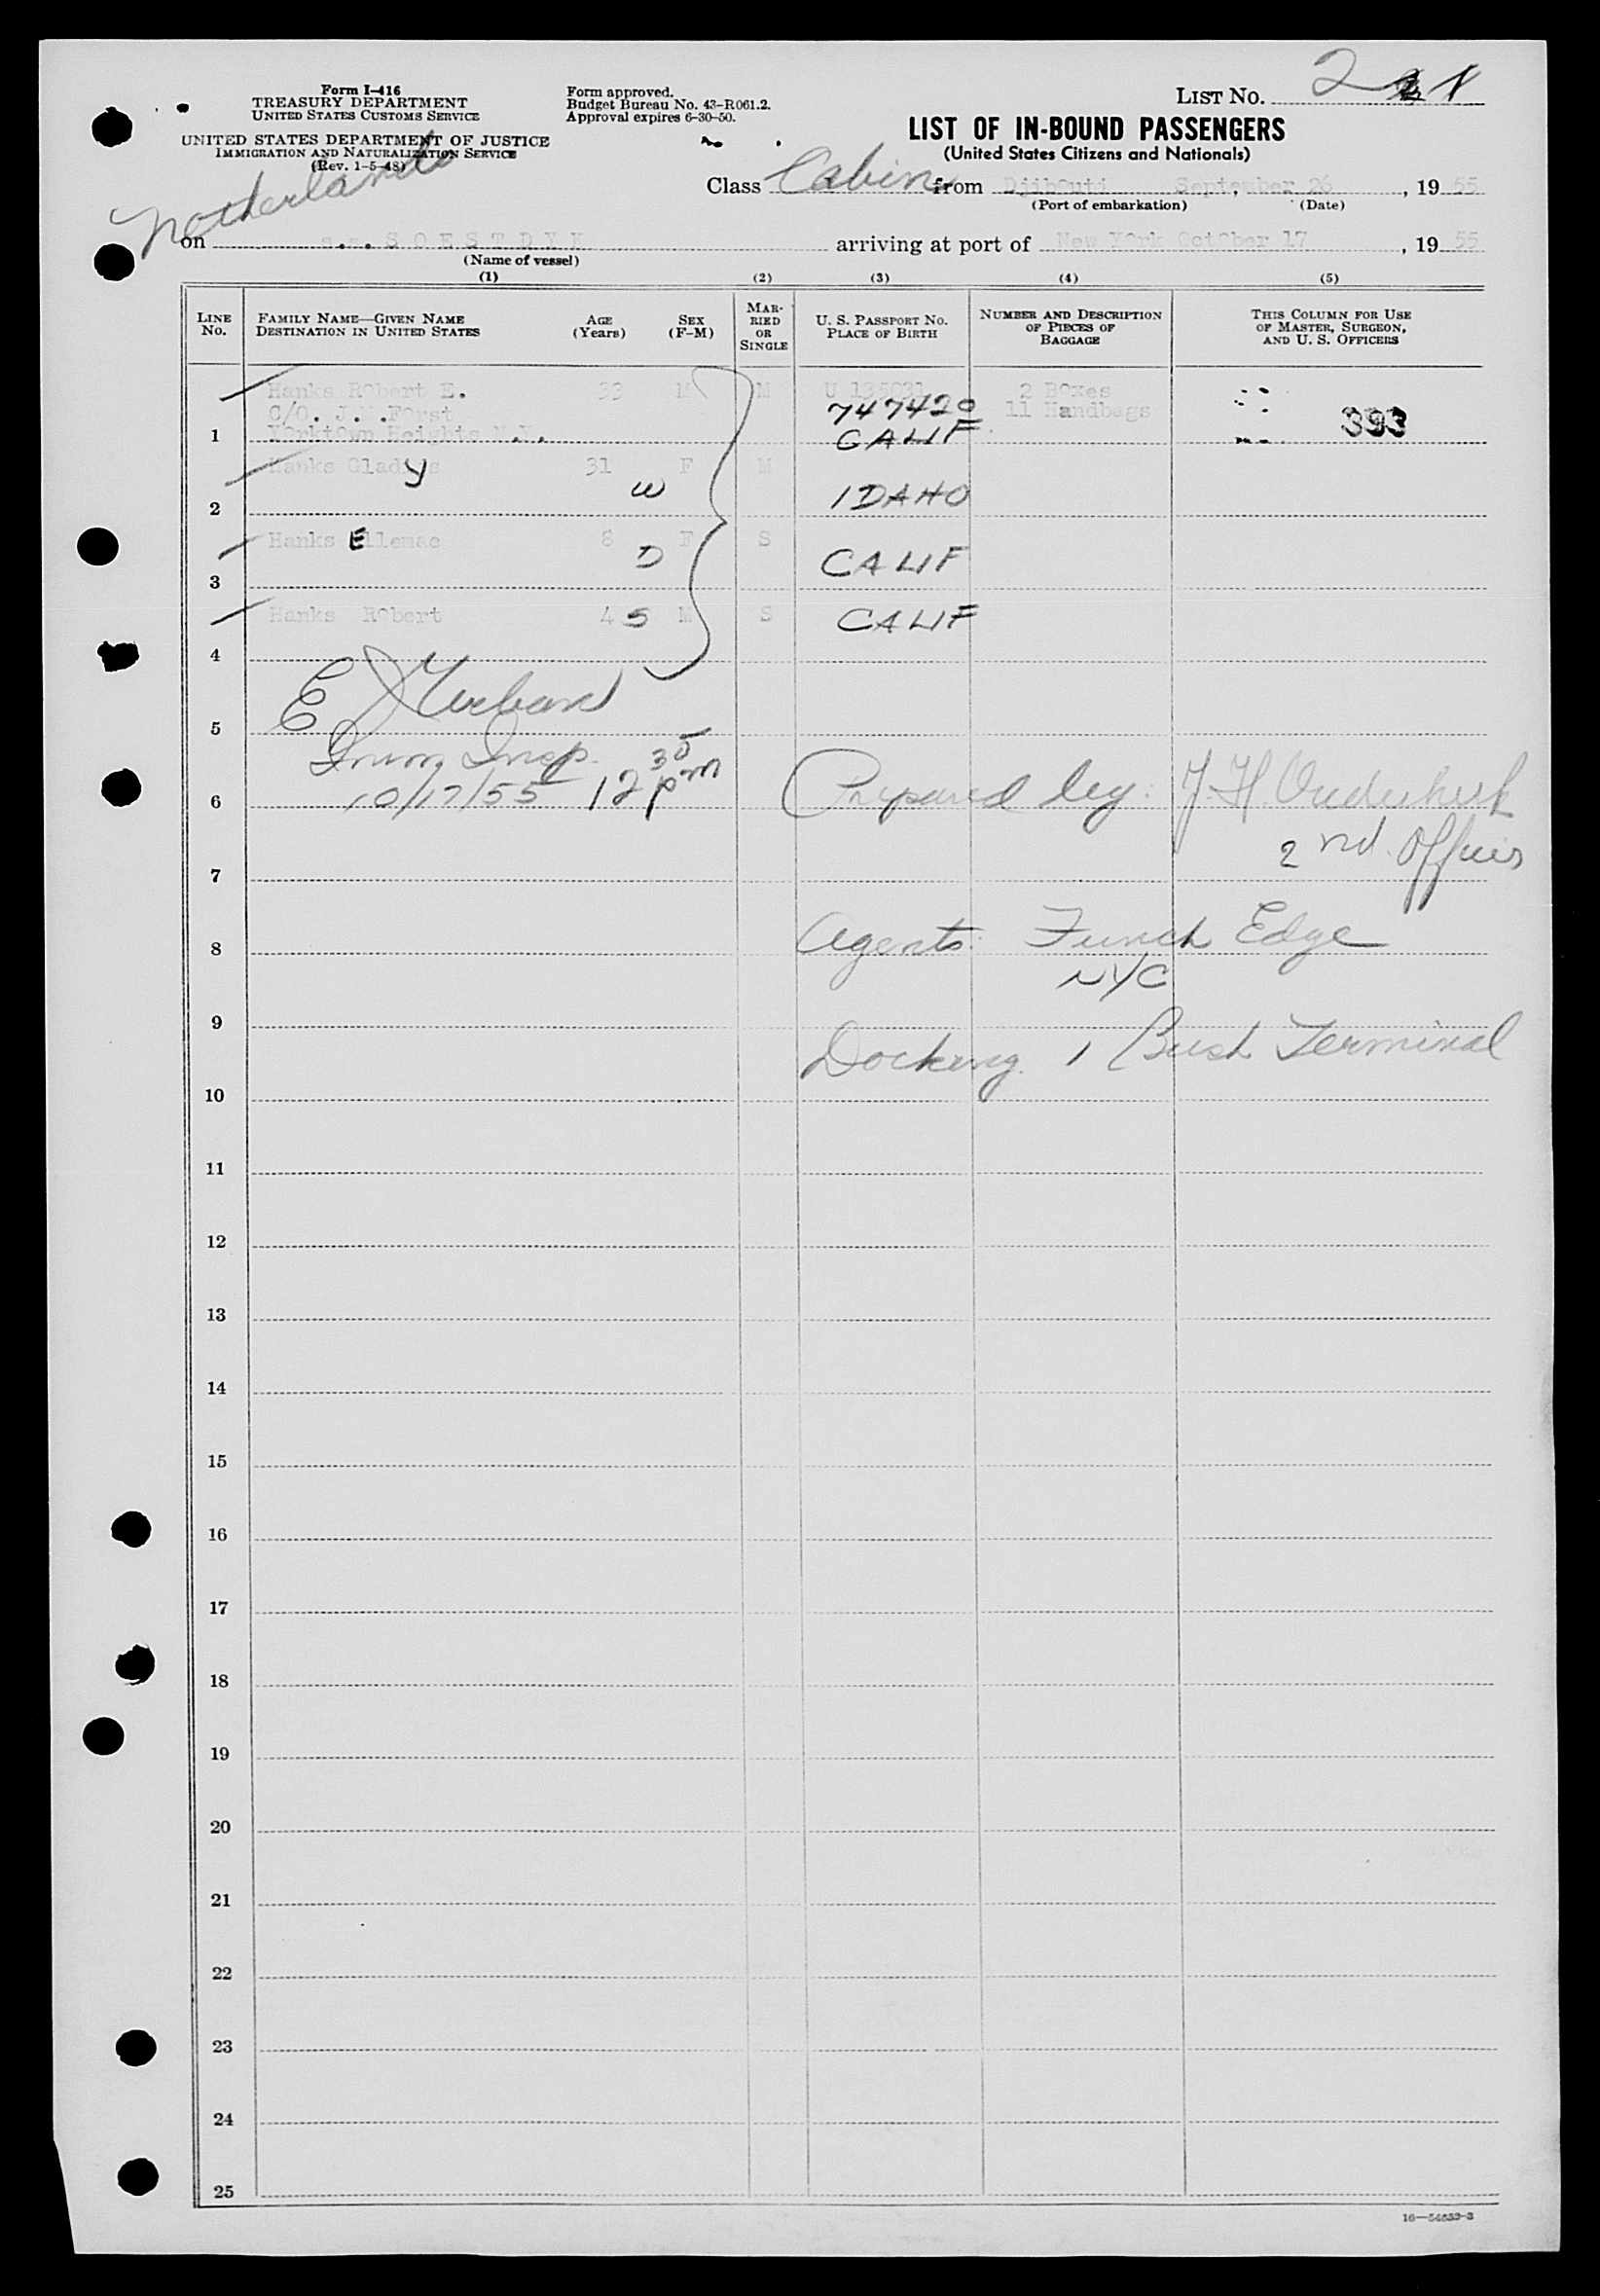 Form I-416
TREASURY DEPARTMENT
UNITED STATES CUSTOMS SERVICE
UNITED STATES DEPARTMENT OF JUSTICE
IMMIGRATION AND NATURALIZATION SERVICE
(Rev. 1-5-48)
Form approved.
Budget Bureau No. 43-R061.2.
Approval expires 6-30-50.
LIST No. 2
LIST OF IN-BOUND PASSENGERS
(United States Citizens and Nationals)
Netherlands
Class Cabin from Djibouti September 26, 1955
(Port of embarkation) (Date)
on s.s. SOESTDYK arriving at port of New York October 17, 1955
(Name of vessel)
(1) (2) (3) (4) (5)
LINE No. FAMILY NAME—GIVEN NAME DESTINATION IN UNITED STATES AGE (Years) SEX (F-M) MARRIED OR SINGLE U. S. PASSPORT NO. PLACE OF BIRTH NUMBER AND DESCRIPTION OF PIECES OF BAGGAGE THIS COLUMN FOR USE OF MASTER, SURGEON, AND U. S. OFFICERS
Hanks Robert E. 33 M M U 135031 2 Boxes
C/O. J.M.Forst 747420 11 Handbags 393
1 Yorktown Heights N.Y. CALIF
Hanks Gladys y 31 F M
2 W IDAHO
Hanks Ellemae 8 F S
3 D CALIF
Hanks Robert 4 S M S CALIF
4
5 E
Imm Insp.
6 10/17/55 12 35 pm Prepared by: J. H.
2nd Officer
7
8 Agents: Funch Edge
NYC
9
Docking 1 Bush Terminal
10
11
12
13
14
15
16
17
18
19
20
21
22
23
24
25
16—54633-3